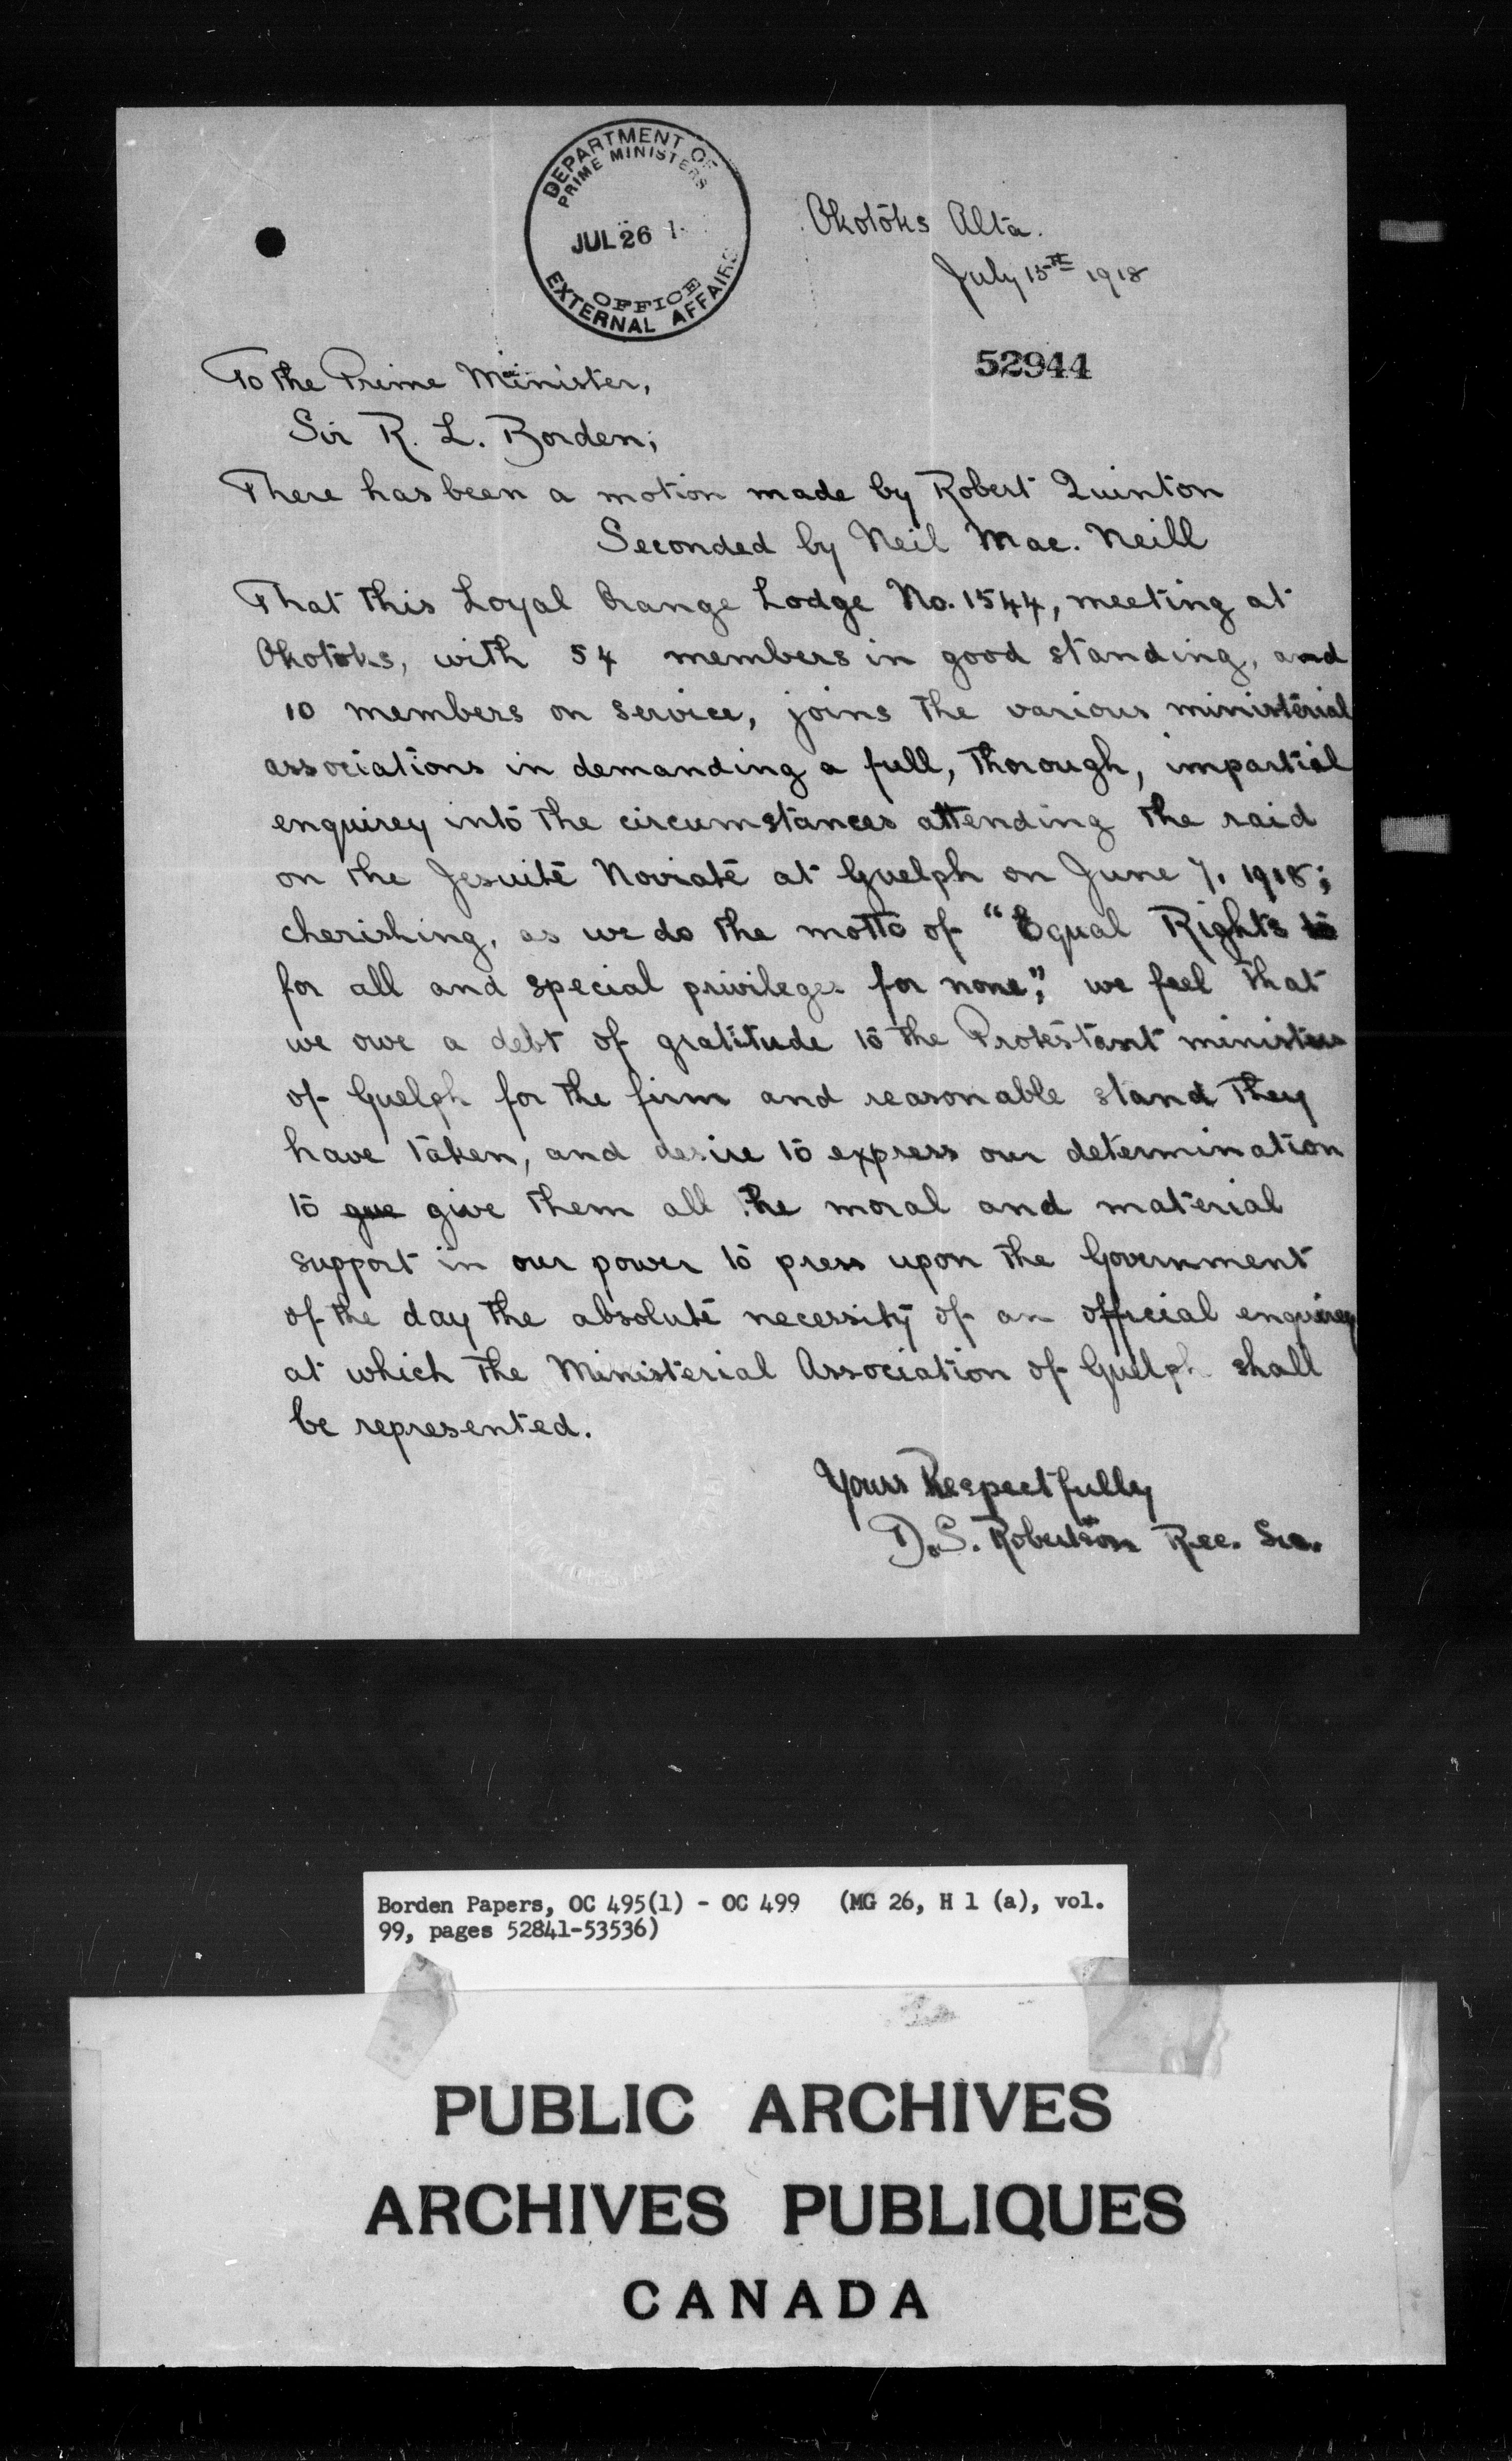 DEPARTMENT OF
PRIME MINISTERS
JUL 26 1
OFFICE
EXTERNAL AFFAIRS
Okotoks Alta.
July 15th 1918
52944
To the Prime Minister,
Sir R. L. Borden;
There has been a motion made by Robert Quinton
Seconded by Neil Mac. Neill
That this Loyal Orange Lodge No. 1544, meeting at
Okotoks, with 54 members in good standing, and
10 members on service, joins the various ministerial
associations in demanding a full, thorough, impartial
enquirey into the circumstances attending the raid
on the Jesuite Noviate at Guelph on June 7, 1918;
cherishing, as we do the motto of "Equal Rights to
for all and special privileges for none", we feel that
we owe a debt of gratitude to the Protestant ministers
of Guelph for the firm and reasonable stand they
have taken, and desire to express our determination
to gve give them all the moral and material
support in our power to press upon the Government
of the day the absolute necessity of an official enquirey
at which the Ministerial Association of Guelph shall
be represented.
Yours Respectfully
D. S. Robertson Rec. Sec.
Borden Papers, OC 495(1) - OC 499 (MG 26, H 1 (a), vol.
99, pages 52841-53536)
PUBLIC ARCHIVES
ARCHIVES PUBLIQUES
CANADA